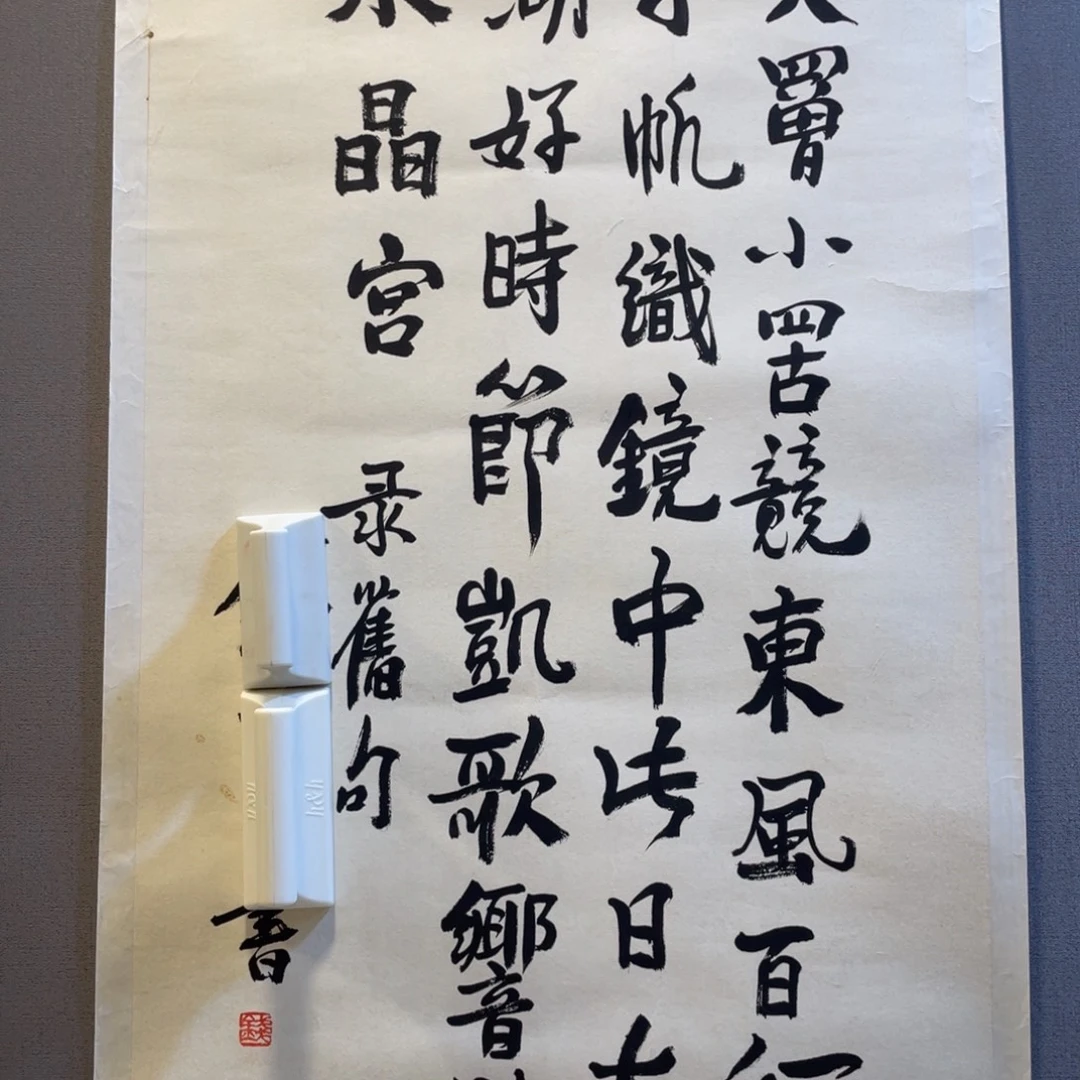 大罾小罟競東風百
帆織鏡中此日
湖好時節凱歌響
水晶宮 录舊句
書